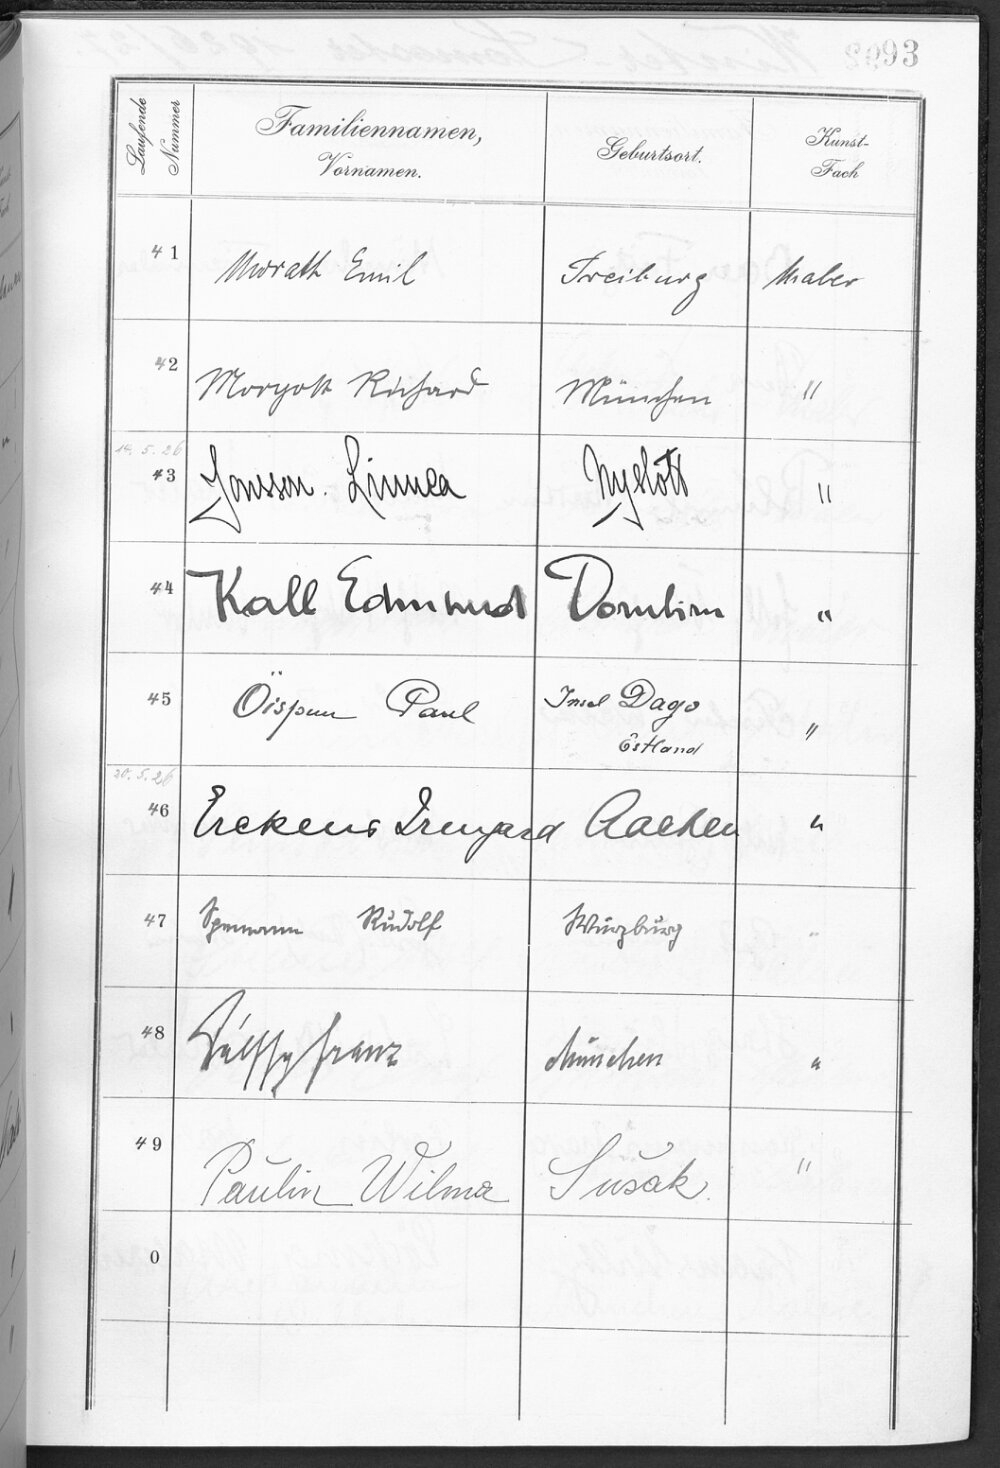 93
Laufende Nummer
Familiennamen,
Vornamen.
Geburtsort.
Kunst-
Fach
41 Morath Emil Freiburg Maler
42 Richard München "
14.5.26
43 Jonsson. Linnea Nyslott "
44 Kall Edmund Dornbirn "
45 Öispuu Paul Insel Dago "
Estland
20.5.26
46 Erckens Irmgard Aachen "
47 Spemann Rudolf Würzburg "
48 Franz München "
49 Paulin Wilma Sušak. "
0